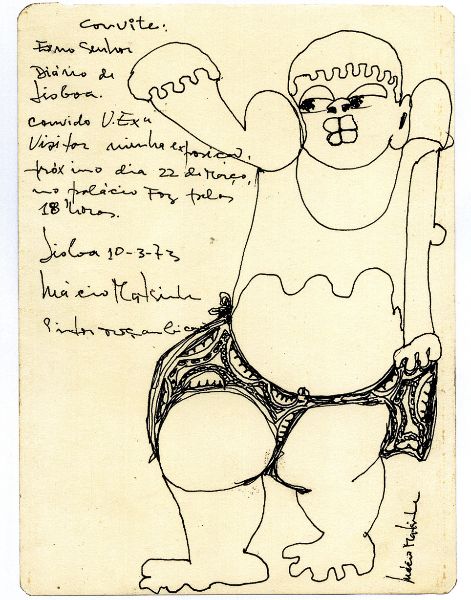 convite:
Exmo Senhor
Diário de
Lisboa.
convido V. Exª
Visitar minha exposição,
próximo dia 22 de Março,
no palácio Foz pelas
18 horas.
Lisboa 10-3-73
Inácio Matsinhe
Pintor moçambicano
Inácio Matsinhe